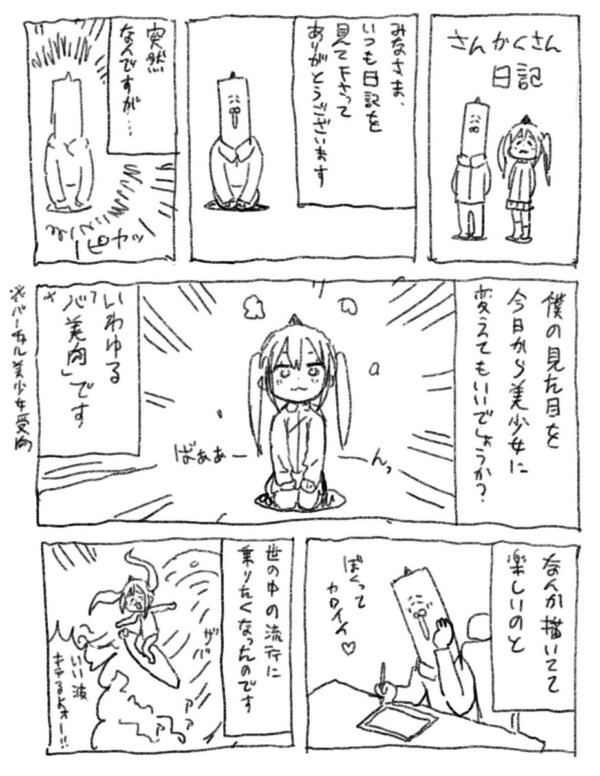 さんかくさん
日記
みなさま、
いつも日記を
見て下さって
ありがとうございます
突然
なんですが…
ピカッ
僕の見た目を
今日から美少女に
変えてもいいでしょうか？
ばぁぁー
ーんっ
いわゆる
「バ美肉」です
※バーチャル美少女受肉
なんか描いてて
楽しいのと
ぼくって
カワイイ♡
世の中の流行に
乗りたくなったのです
ザバ
ァァ
いい波
きてるよォー!!